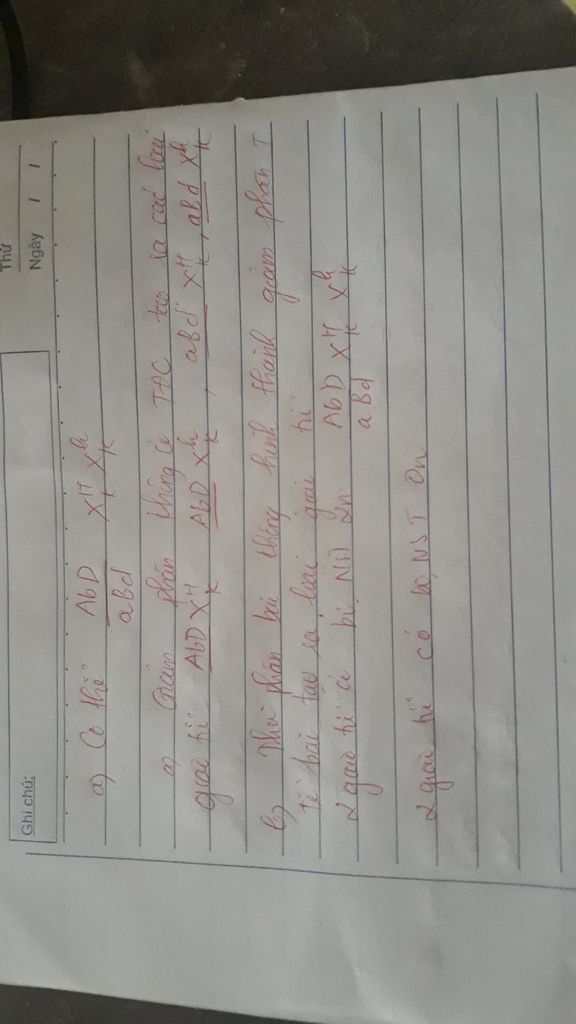 Thứ
Ngày / /
Ghi chú:
a) Cơ thể AbD/aBd X^H_k X^h_K
a) Giảm phân không có TĐC tạo ra các loại
giao tử AbD X^H_k AbD X^h_K, aBd X^H_k, aBd X^h_K
b) phân bào không hình thành giảm phân I
tế bào tạo ra loại giao tử
2 giao tử có bộ NST 2n AbD/aBd X^H_k X^h_K
2 giao tử có bộ NST 0n